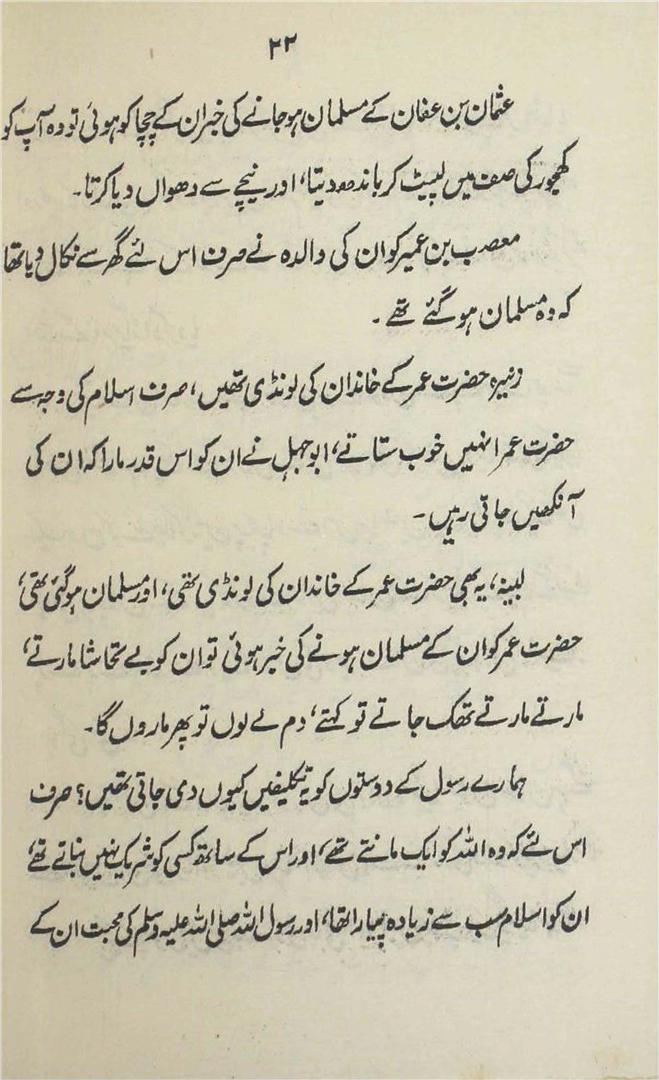 ۲۲
عثمان بن عفان کے مسلمان ہو جانے کی خبر ان کے چچا کو ہوئی تو وہ آپ کو
کھجور کی صف میں لپیٹ کر باندھ دیتا، اور نیچے سے دھواں دیا کرتا۔
معصب بن عمیر کو ان کی والدہ نے صرف اس لئے گھر سے نکال دیا تھا
کہ وہ مسلمان ہو گئے تھے۔
زنیرہ حضرت عمر کے خاندان کی لونڈی تھیں، صرف اسلام کی وجہ سے
حضرت عمر انہیں خوب ستاتے، ابو جہل نے ان کو اس قدر مارا کہ ان کی
آنکھیں جاتی رہیں۔
لبینہ، یہ بھی حضرت عمر کے خاندان کی لونڈی تھی، اور مسلمان ہو گئی تھی،
حضرت عمر کو ان کے مسلمان ہونے کی خبر ہوئی تو ان کو بے تحاشا مارتے،
مارتے مارتے تھک جاتے تو کہتے، دم لے لوں تو پھر ماروں گا۔
ہمارے رسول کے دوستوں کو یہ تکلیفیں کیوں دی جاتی تھیں؟ صرف
اس لئے کہ وہ اللہ کو ایک مانتے تھے، اور اس کے ساتھ کسی کو شریک نہیں بناتے تھے،
ان کو اسلام سب سے زیادہ پیارا تھا، اور رسول اللہ صلی اللہ علیہ وسلم کی محبت ان کے